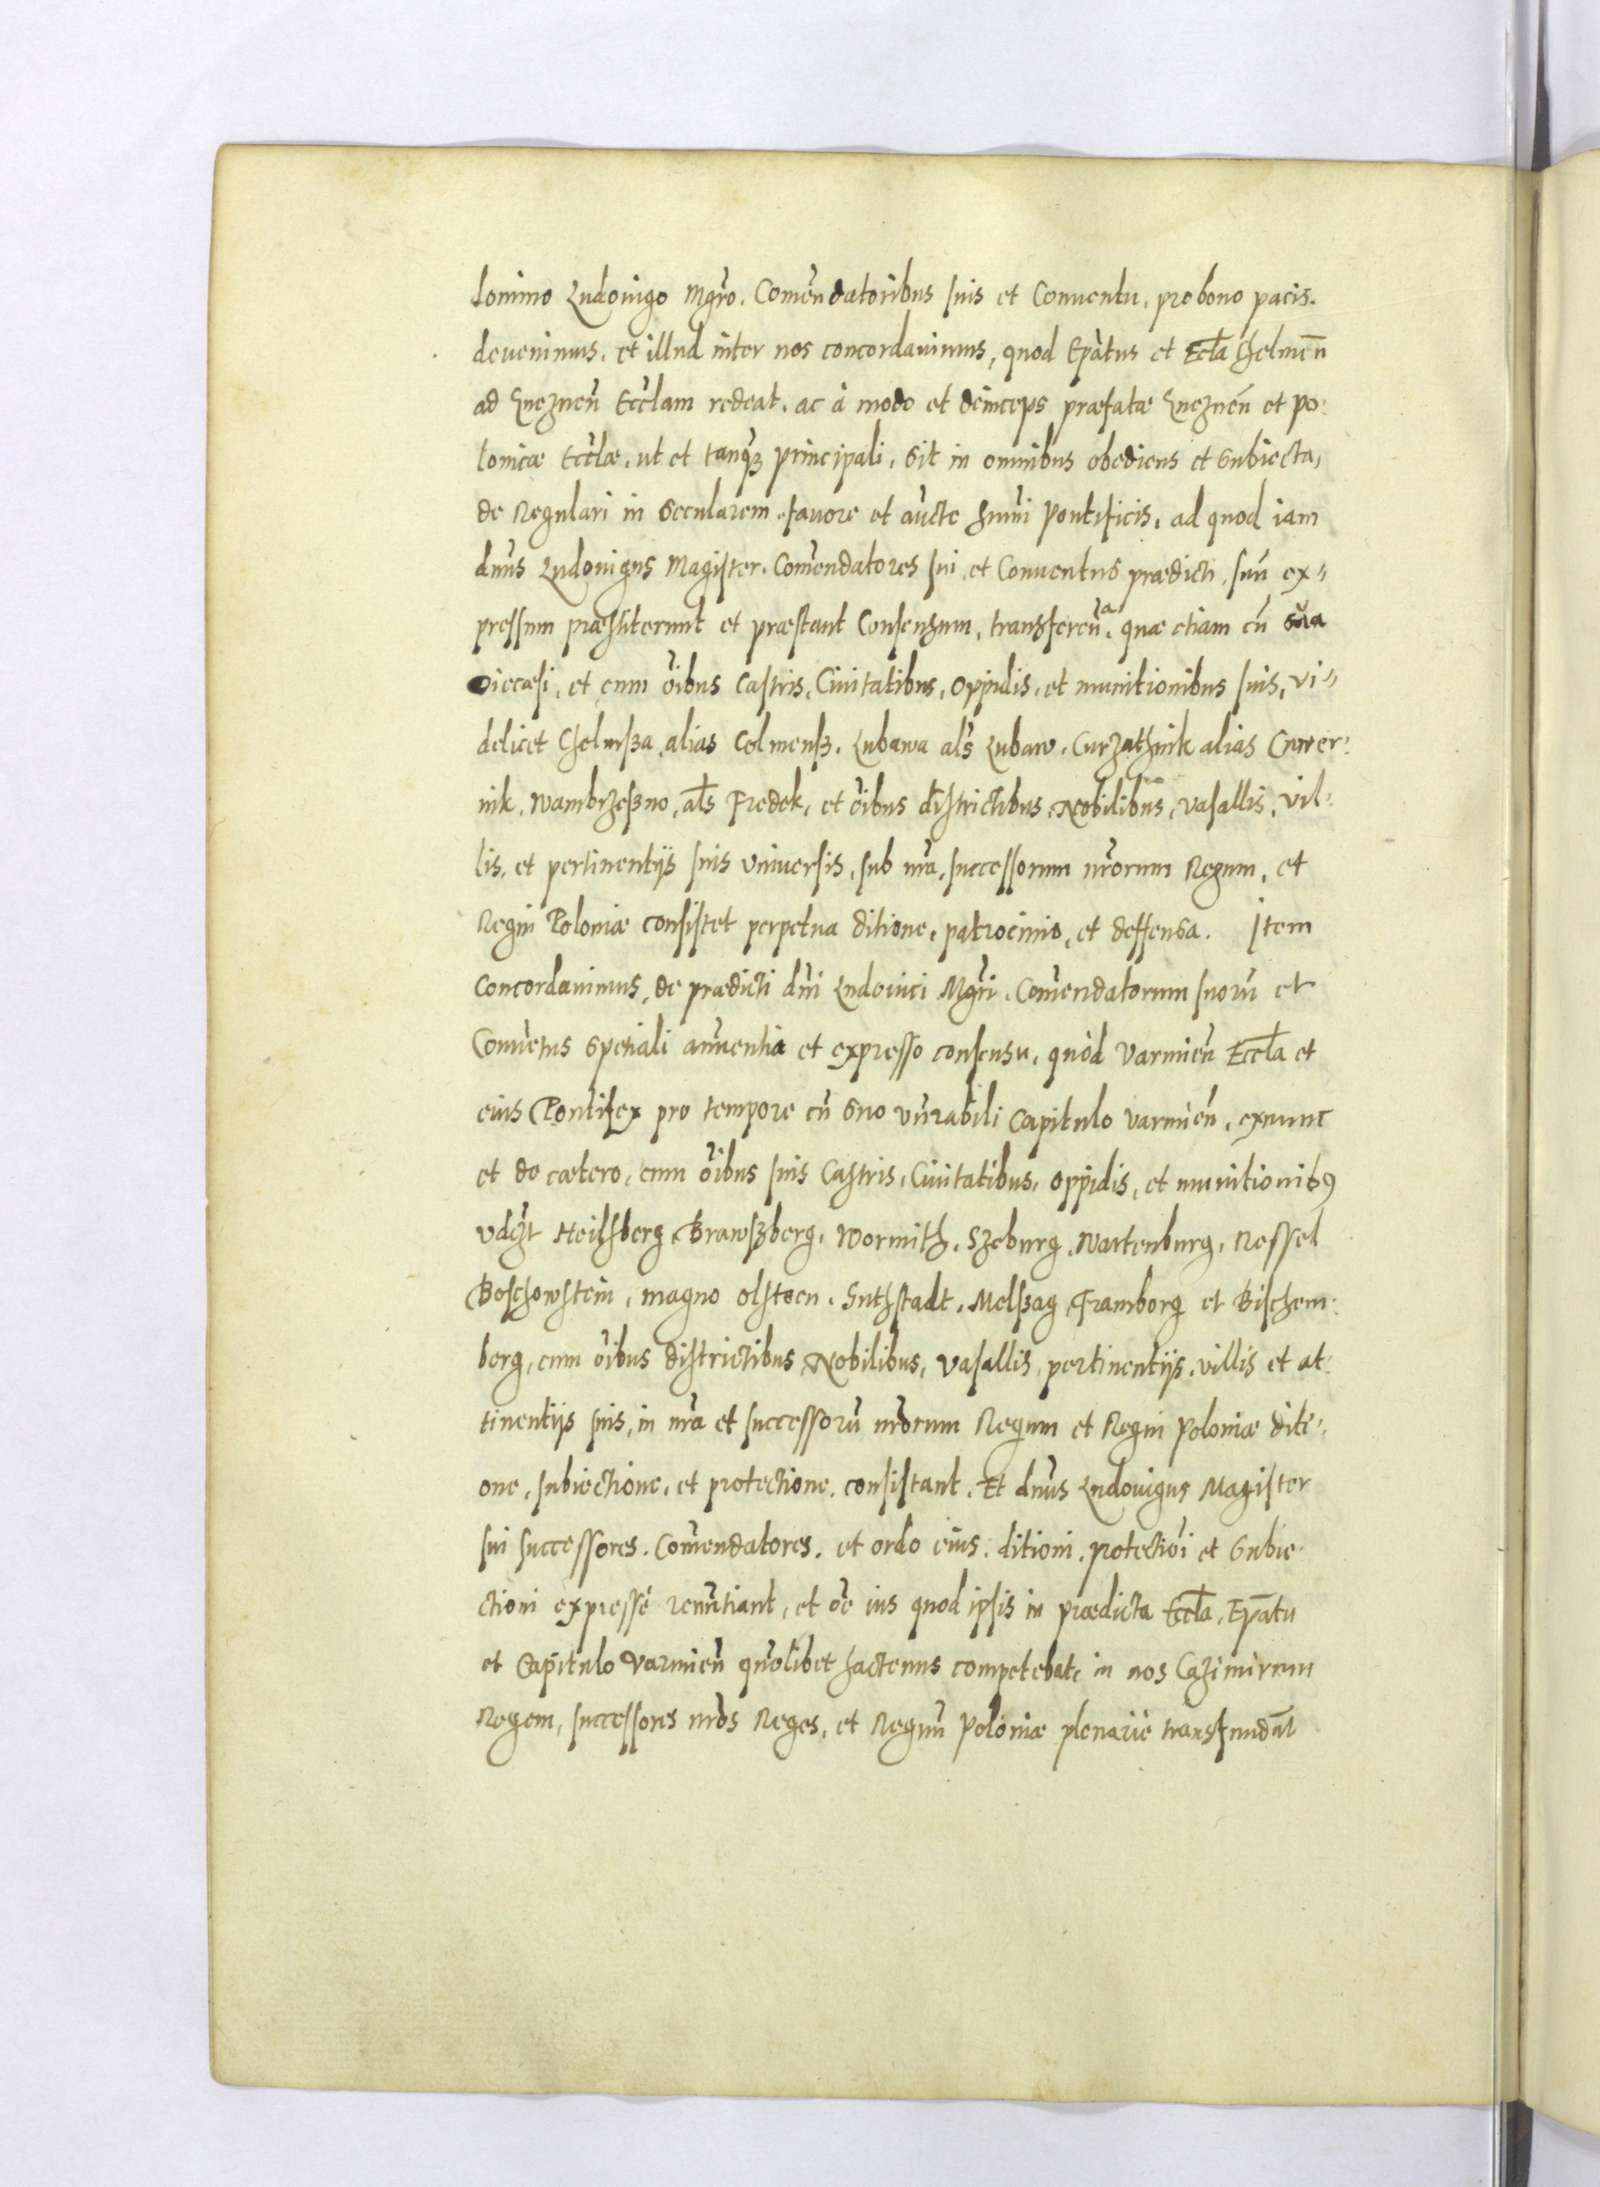 domino Ludouigo Mgro. Comendatoribus suis et Conuentu, pro bono pacis.
deuenimus, et illud inter nos concordauimus, quod Epatus et Eccla Chelmen̄
ad Gneznen̄ Ecclam redeat. ac à modo et deinceps præfatæ Gneznen̄ et Po:
lonicæ Ecclæ, ut et tanqȝ principali, sit in omnibus obediens et subiecta,
de Regulari in Secularem, fauore et aucte Summi Pontificis, ad quod iam
dnus Ludouigus Magister. Comendatores sui, et Conuentus prædicti, suū ex„
pressum præstiterunt et præstant Consensum, transferen̄a. quæ etiam cū sua
Diecæsi, et cum oibus Castris, Ciuitatibus, Oppidis, et munitionibus suis, vi„
delicet Chelmßa alias Colmenß. Lubawa als Lubaw. Curzathnik alias Cawer:
nik. Wambrzeßno, als Fredek, et oibus districtibus, Nobilibus, vasallis, vil:
lis, et pertinentijs suis vniuersis, sub nra, successorum nrorum Regum, et
Regni Poloniæ consistet perpetua ditione, patrocinio, et deffensa. Item
Concordauimus, de prædicti dni Ludouici Mgri. Comendatorum suorū et
Conuetus spetiali annuentia et expresso consensu, quòd Varmien̄ Eccla et
eius Pontifex pro tempore cū suo vnrabili Capitulo Varmien̄, exnunc
et de cætero, cum oibus suis Castris, Ciuitatibus, oppidis, et munitionibꝰ
vdczt Heilsberg, Brawszberg, Wormith, Szeburg, Wartenburg, Ressel
Boschowstein, magno olsteen. Guthstadt, Melßag, Framborg et Bischem:
berg, cum oibus districtibus Nobilibus, vasallis, pertinentijs, villis et at:
tinentijs suis, in nra et successorū nrorum Regum et Regni Poloniæ diti:
one, subiectione, et protectione, consistant. Et dnus Ludouigus Magister
sui successores. Comendatores. et ordo eius. ditioni. protectioi et subie:
ctioni expressè renuntiant, et oe ius quod ipsis in prædicta Eccla, Epatu
et Capitulo Varmien̄ quolibet hactenus competebat, in nos Cazimirum
Regem, successores nros Reges, et Regnū Poloniæ plenarie transfundūt